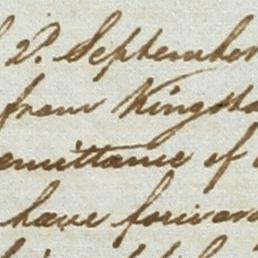 2d. September
from Kingsto
emittance of
have forward